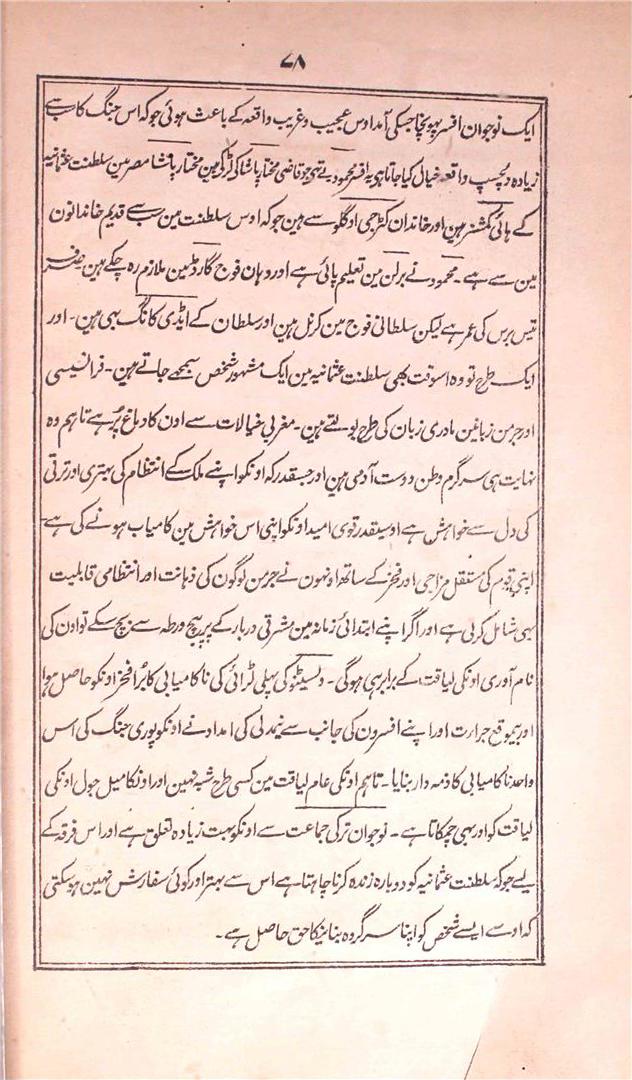 ۷۸
ایک نوجوان افسر پہونچا جسکی آمد اوس عجیب و غریب واقعہ کے باعث ہوئی جو کہ اس جنگ کا سب سے
زیادہ دلچسپ واقعہ خیال کیا جاتا ہی یہ افسر محمود بے تہی جو قاضی مختار پاشا کی لڑکی مین مختار پاشا مصر مین سلطنت عثمانیہ
کے ہائی کمشنر ہین اور خاندان کٹرجی اوگلو سے ہین جو کہ اوس سلطنت مین سب سے قدیم خاندانون
مین سے ہے ۔ محمود نے برلن مین تعلیم پائی ہے اور وہان فوج گارڈ مین ملازم رہ چکے ہین صرف
تیس برس کی عمر ہے لیکن سلطانی فوج مین کرنل ہین اور سلطان کے ایڈی کانگ بہی ہین ۔ اور
ایک طرح تو وہ اسوقت بھی سلطنت عثمانیہ مین ایک مشہور شخص سمجھے جاتے ہین ۔ فرانسیسی
اور جرمن زبانین مادری زبان کی طرح بولتے ہین ۔ مغربی خیالات سے اون کا دماغ پُر ہے تاہم وہ
نہایت ہی سرگرم وطن دوست آدمی ہین اور جسقدر کہ اونکو اپنے ملک کے انتظام کی بہتری اور ترقی
کی دل سے خواہش ہے اوسیقدر قوی امید اونکو اپنی اس خواہش مین کامیاب ہونے کی ہے
اپنی قوم کی مستقل مزاجی اور فخر کے ساتھ اونہون نے جرمن لوگون کی ذہانت اور انتظامی قابلیت
بہی شامل کرلی ہے اور اگر اپنے ابتدائی زمانہ مین مشرقی دربار کے پر پیچ ورطہ سے بچ سکے تو اون کی
نام آوری اونکی لیاقت کے برابر ہی ہوگی ۔ ولسٹینو کی پہلی لڑائی کی ناکامیابی کا بڑا فخر اونکو حاصل ہوا
اور بیموقع جرارت اور اپنے افسرون کی جانب سے نیمدلی کی امداد نے اونکو پوری جنگ کی اس
واحد ناکامیابی کا ذمہ دار بنایا ۔ تاہم اونکی عام لیاقت مین کسی طرح شبہ نہین اور اونکا میل جول اونکی
لیاقت کو اور بہی چمکاتا ہے ۔ نوجوان ترکی جماعت سے اونکو بہت زیادہ تعلق ہے اور اس فرقہ کے
لیے جو کہ سلطنت عثمانیہ کو دوبارہ زندہ کرنا چاہتا ہے اس سے بہتر اور کوئی سفارش نہین ہوسکتی
کہ اوسے ایسے شخص کو اپنا سرگروہ بنانیکا حق حاصل ہے ۔